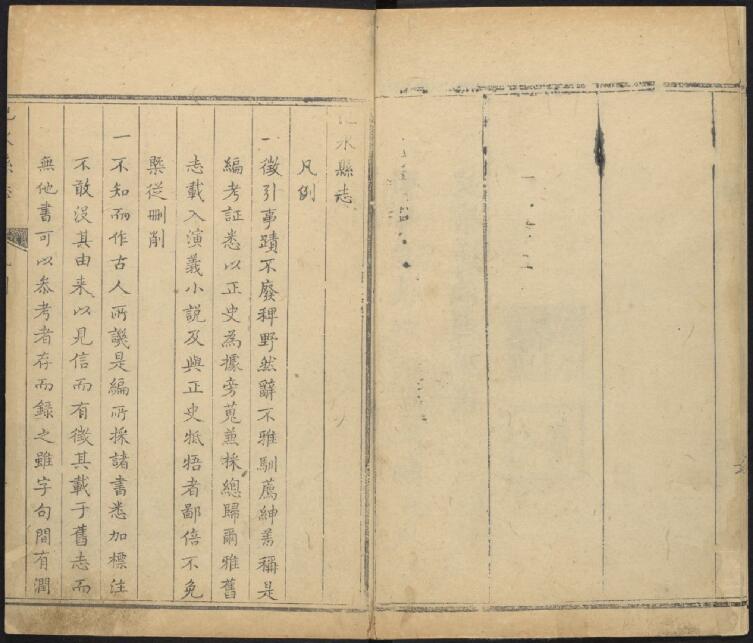 水縣志
凡例
一徵引事蹟不廢稗野然辭不雅馴薦紳羞稱是
編考証悉以正史為據旁蒐兼採總歸爾雅舊
志載入演義小說及與正史牴牾者鄙倍不免
槩從刪削
一不知而作古人所譏是編所採諸書悉加標注
不敢沒其由来以見信而有徵其載于舊志而
無他書可以叅考者存而録之雖字句間有潤